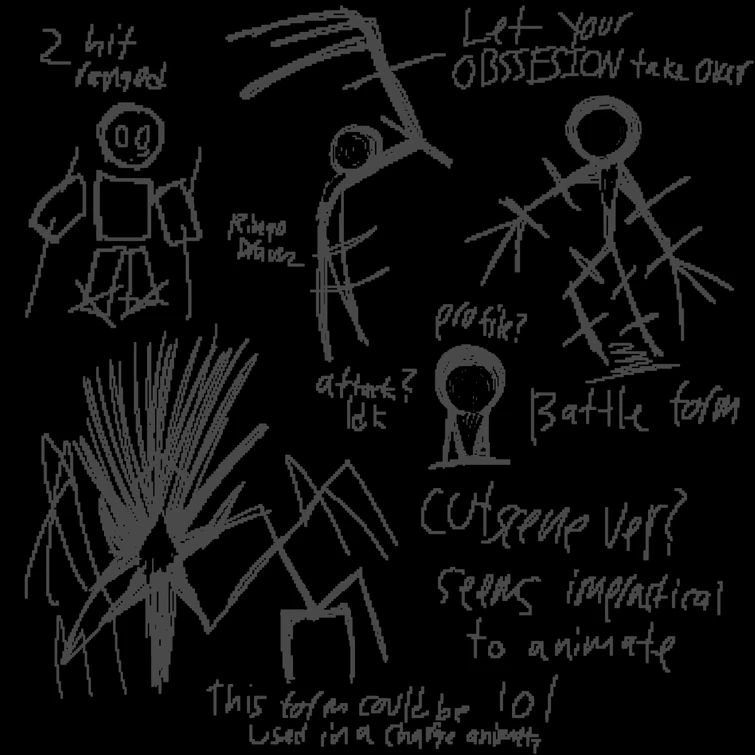 2 hit
ranged
Let your
OBSSESION take over
profile?
attack?
idk
Battle form
cutscene ver?
seems impractical
to animate
this form could be lol
used in a charge